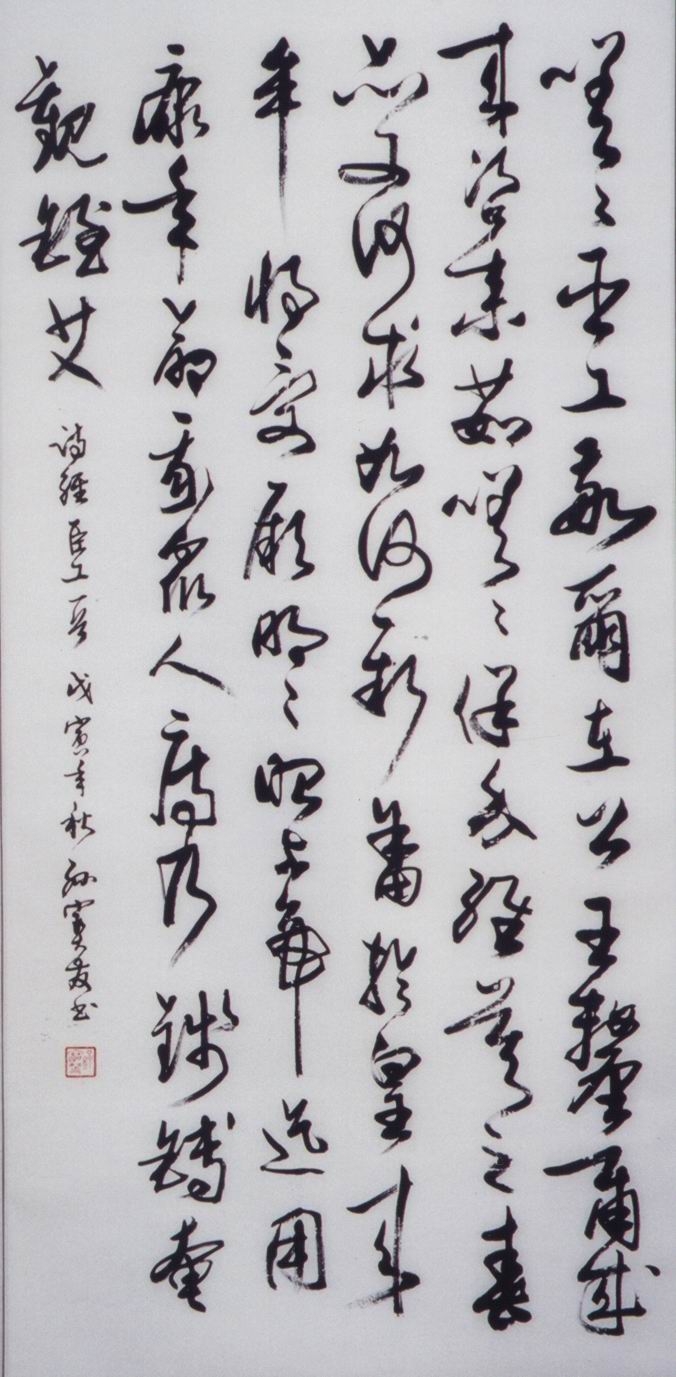 嗟〻臣工敬爾在公王釐爾成
來咨來茹嗟〻保介維莫之春
亦又何求如何新畬於皇來
牟將受厥明〻昭上帝迄用
康年命我眾人庤乃錢鎛奄
觀銍艾 詩經臣工一首 戊寅年秋 孫寶書